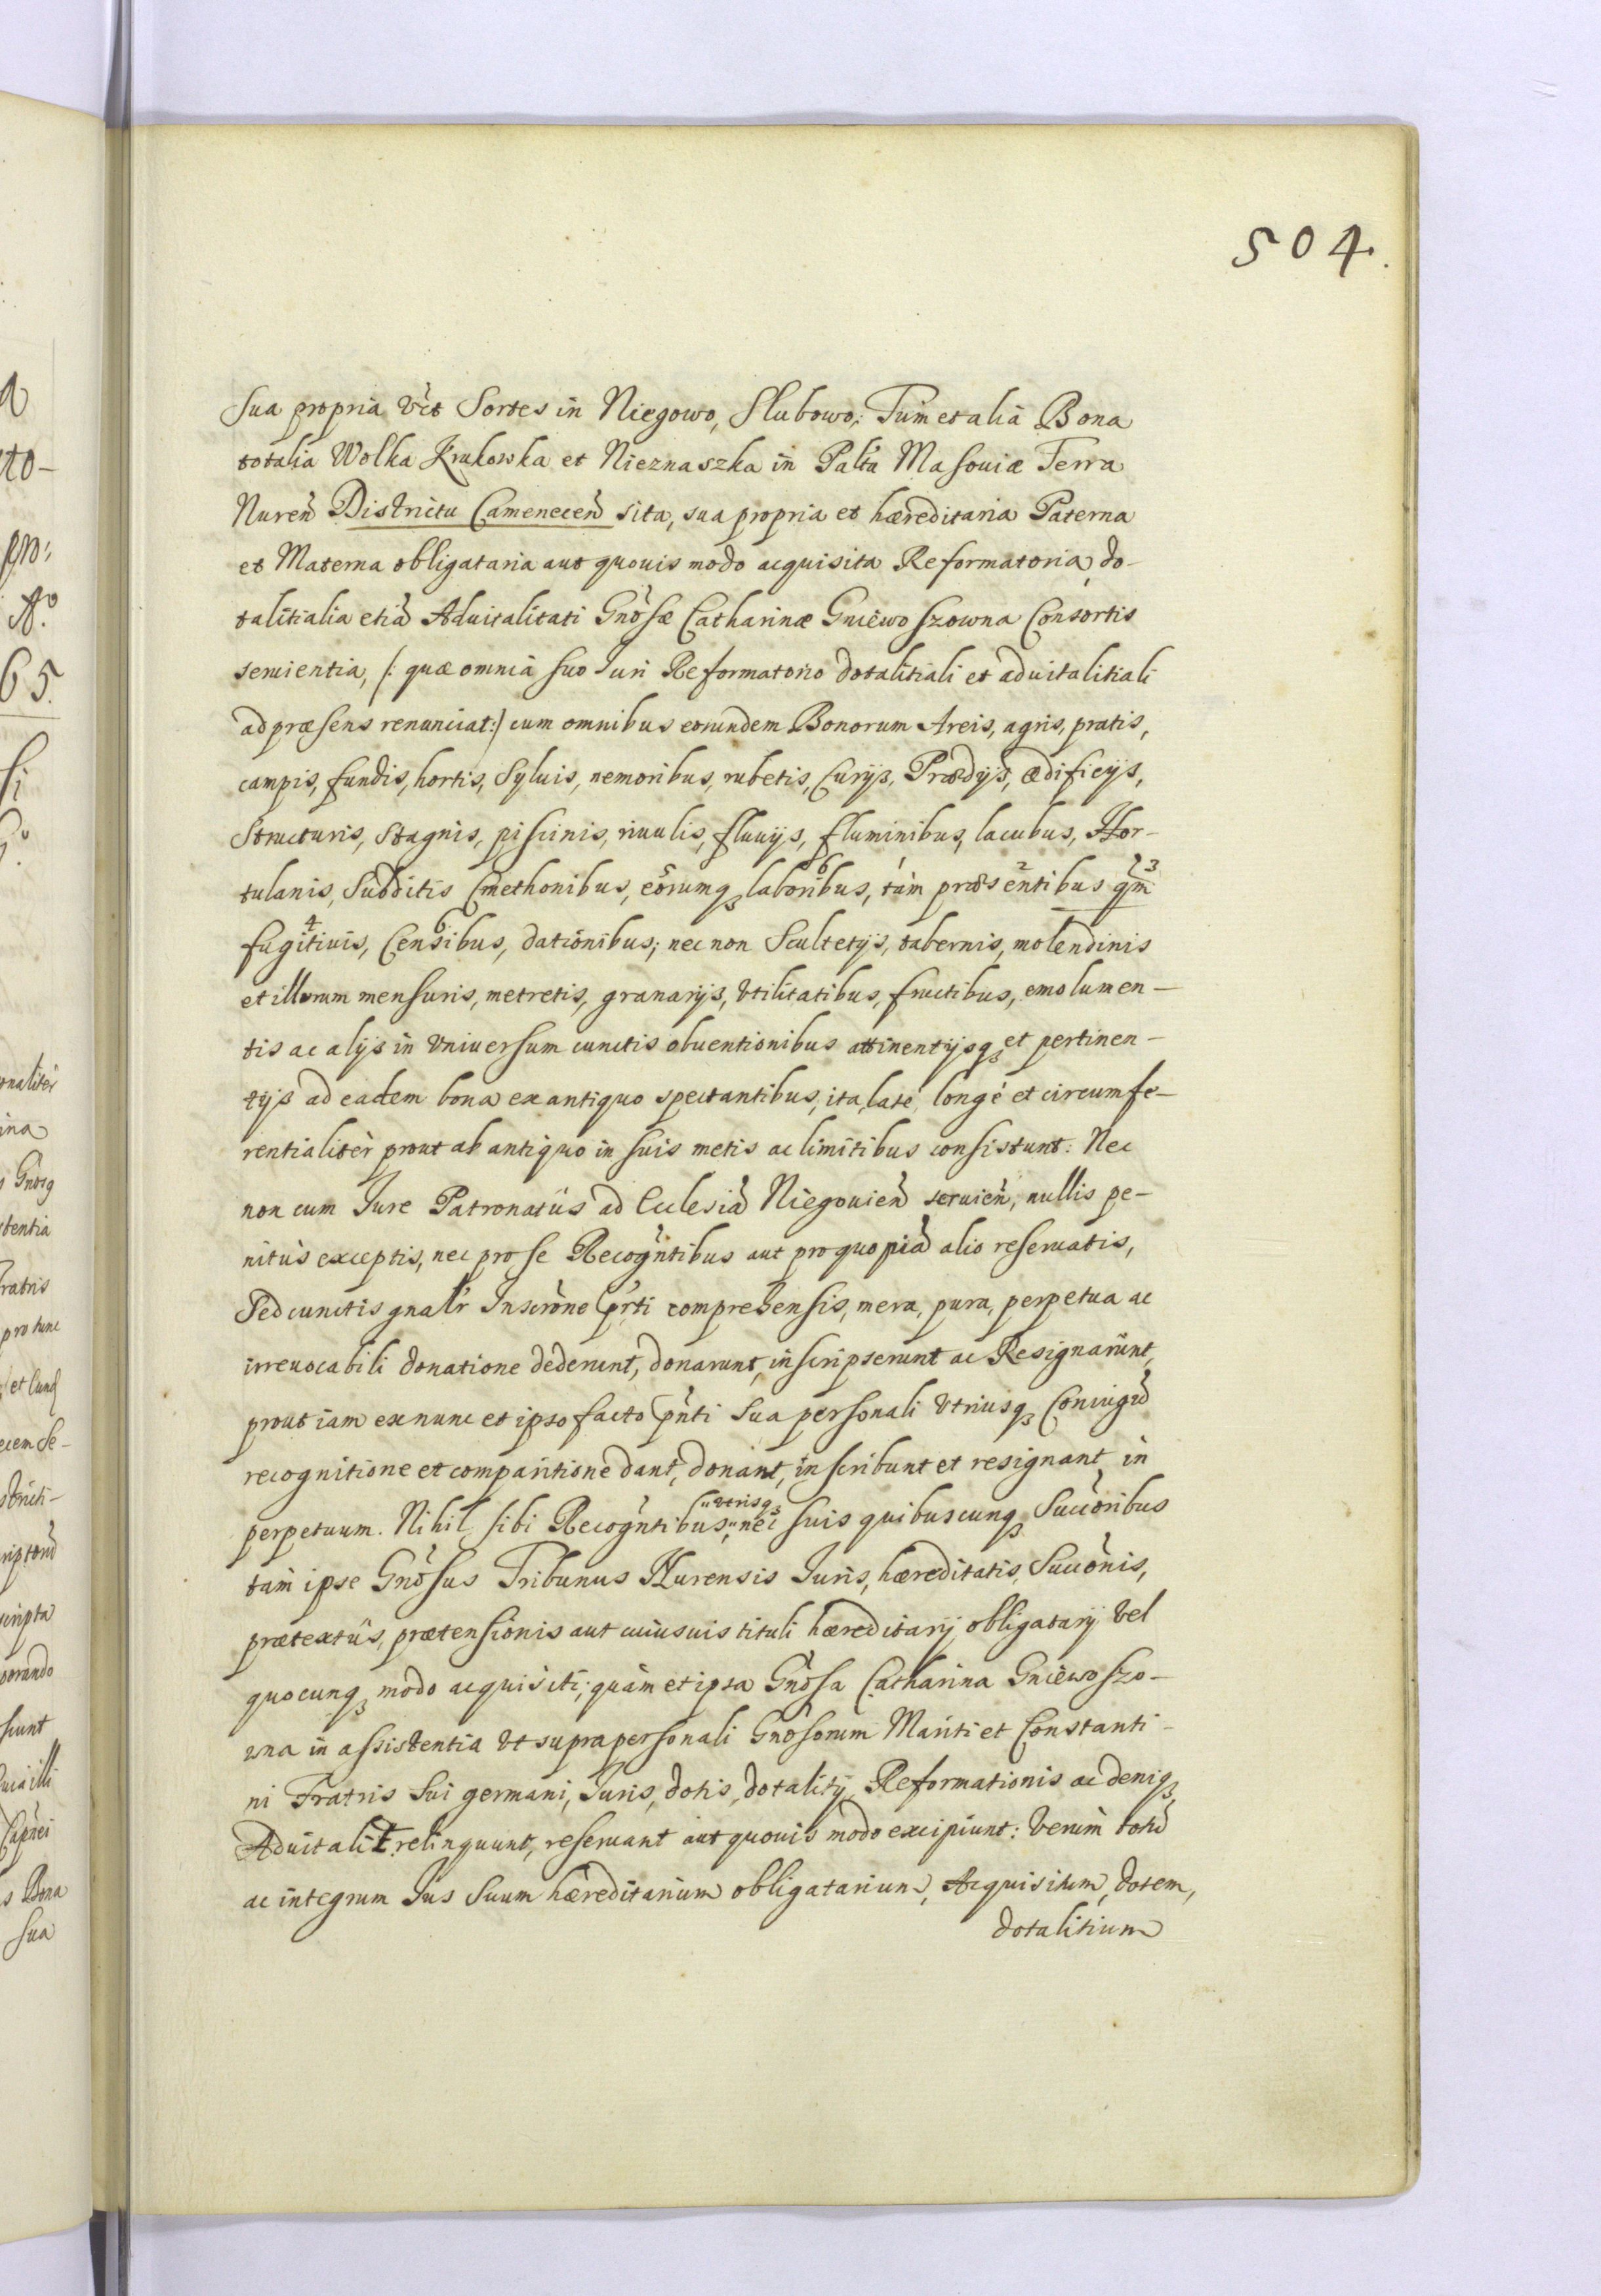 504.
Sua propria vct Sortes in Niegowo, Slubowo; Tum et alia Bona
totalia Wolka Krukowska et Nieznaszka in Paltu Masoviæ Terra
Nuren Districtu Camenecen sita, sua propria et hæreditaria Paterna
et Materna obligataria aut quouis modo acquisita Reformatoria, do-
talitialia etiã Aduitalitati Gnosæ Catharinæ Gniewoszowna Consortis
seruientia, /: quæ omnia suo Iuri Reformatorio dotalitiali et aduitalitiali
ad præsens renunciat :/ cum omnibus eorundem Bonorum Areis, agris, pratis,
campis, fundis, hortis, Syluis, nemoribus, rubetis, Curijs, Prædijs, ædificijs,
Structuris, Stagnis, piscinis, riuulis, fluuijs, fluminibus, lacubus, Hor-
tulanis, Subditis Cmethonibus, eorumqȝ laboribus, tàm præsentibus qm̃
fugitiuis, Censibus, dationibus; nec non Scultetijs, tabernis, molendinis
et illorum mensuris, metretis, granarijs, Vtilitatibus, fructibus, emolumen-
tis ac alijs in Vniuersum cunctis obuentionibus attinentijsqȝ et pertinen-
tijs ad eadem bona ex antiquo spectantibus, ita, latè, longè et circumfe-
rentialitèr prout ab antiquo in suis metis ac limitibus consistunt: Nec
non cum Iure Patronatûs ad Ecclesiã Niegouien seruien, nullis pe-
nitùs exceptis, nec pro se Recogntibus aut pro quopiã alio reseruatis,
Sed cunctis gnalr Inscrone prti comprehensis, mera, pura, perpetua ac
irreuocabili donatione dederunt, donarunt, inscripserunt ac Resignarunt,
prout iam ex nunc et ipso facto pnti Sua personali Vtriusqȝ Coniugũ
recognitione et comparitione dant, donant, inscribunt et resignant in
perpetuum. Nihil sibi Recogntibus, utrisqȝ nec suis quibuscunqȝ Succoribus
tam ipse Gnosus Tribunus Nurensis Iuris, hæreditatis, Succonis,
prætextûs, prætensionis aut cuiusuis tituli hæreditarij obligatarij Vel
quocunqȝ modo acquisiti; quàm et ipsa Gnosa Catharina Gniewoszo-
wna in assistentia Vt supra personali Gnosorum Mariti et Constanti-
ni Fratris Sui germani, Iuris, dotis, dotalitij Reformationis ac deniqȝ
Aduitalit. relinquunt, reseruant aut quouis modo excipiunt: Verùm totũ
ac integrum Ius Suum hæreditarium obligatarium, Acquisitum, dotem,
dotalitium